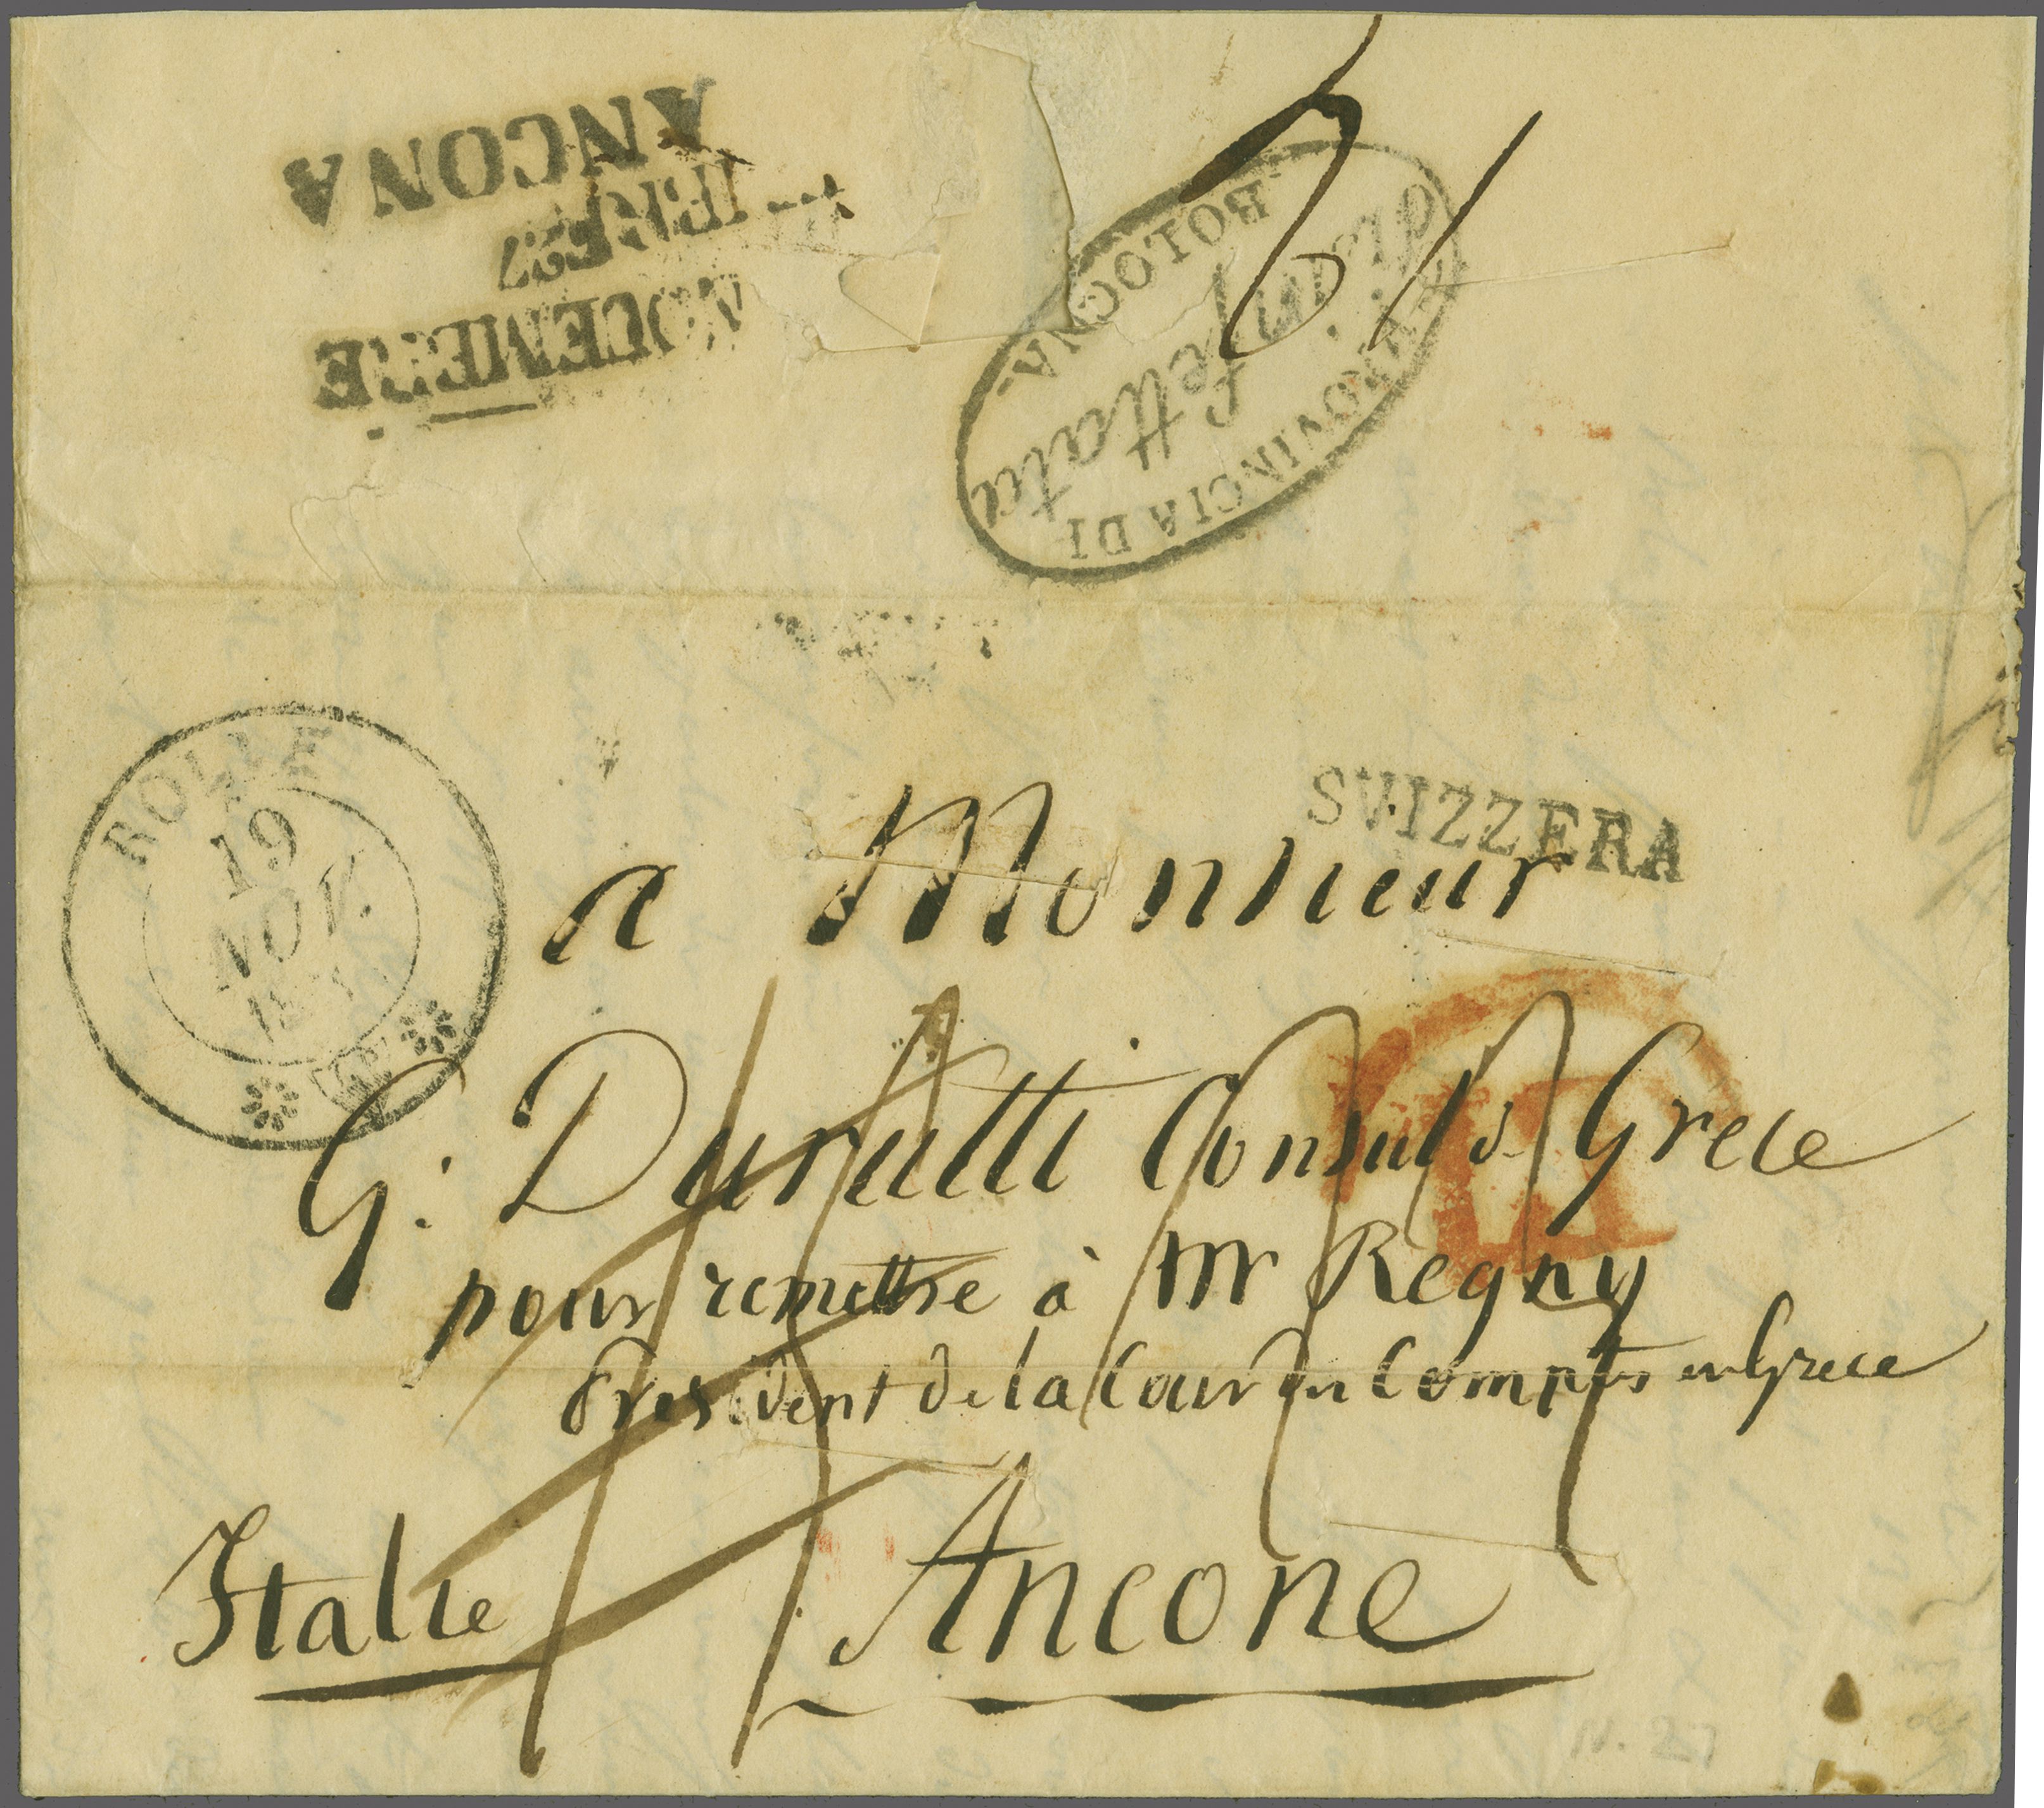 ANCONA
27
NOVEMBRE
PROVINCIA DI
BOLOGNA
disinfettata
ROLLE
19
NOV.
SVIZZERA
a Monsieur
G: Durutti Consul de Grece
pour remettre à Mr Regny
President de la Cour des Comptes en Grece
Italie
Ancone
N. 27